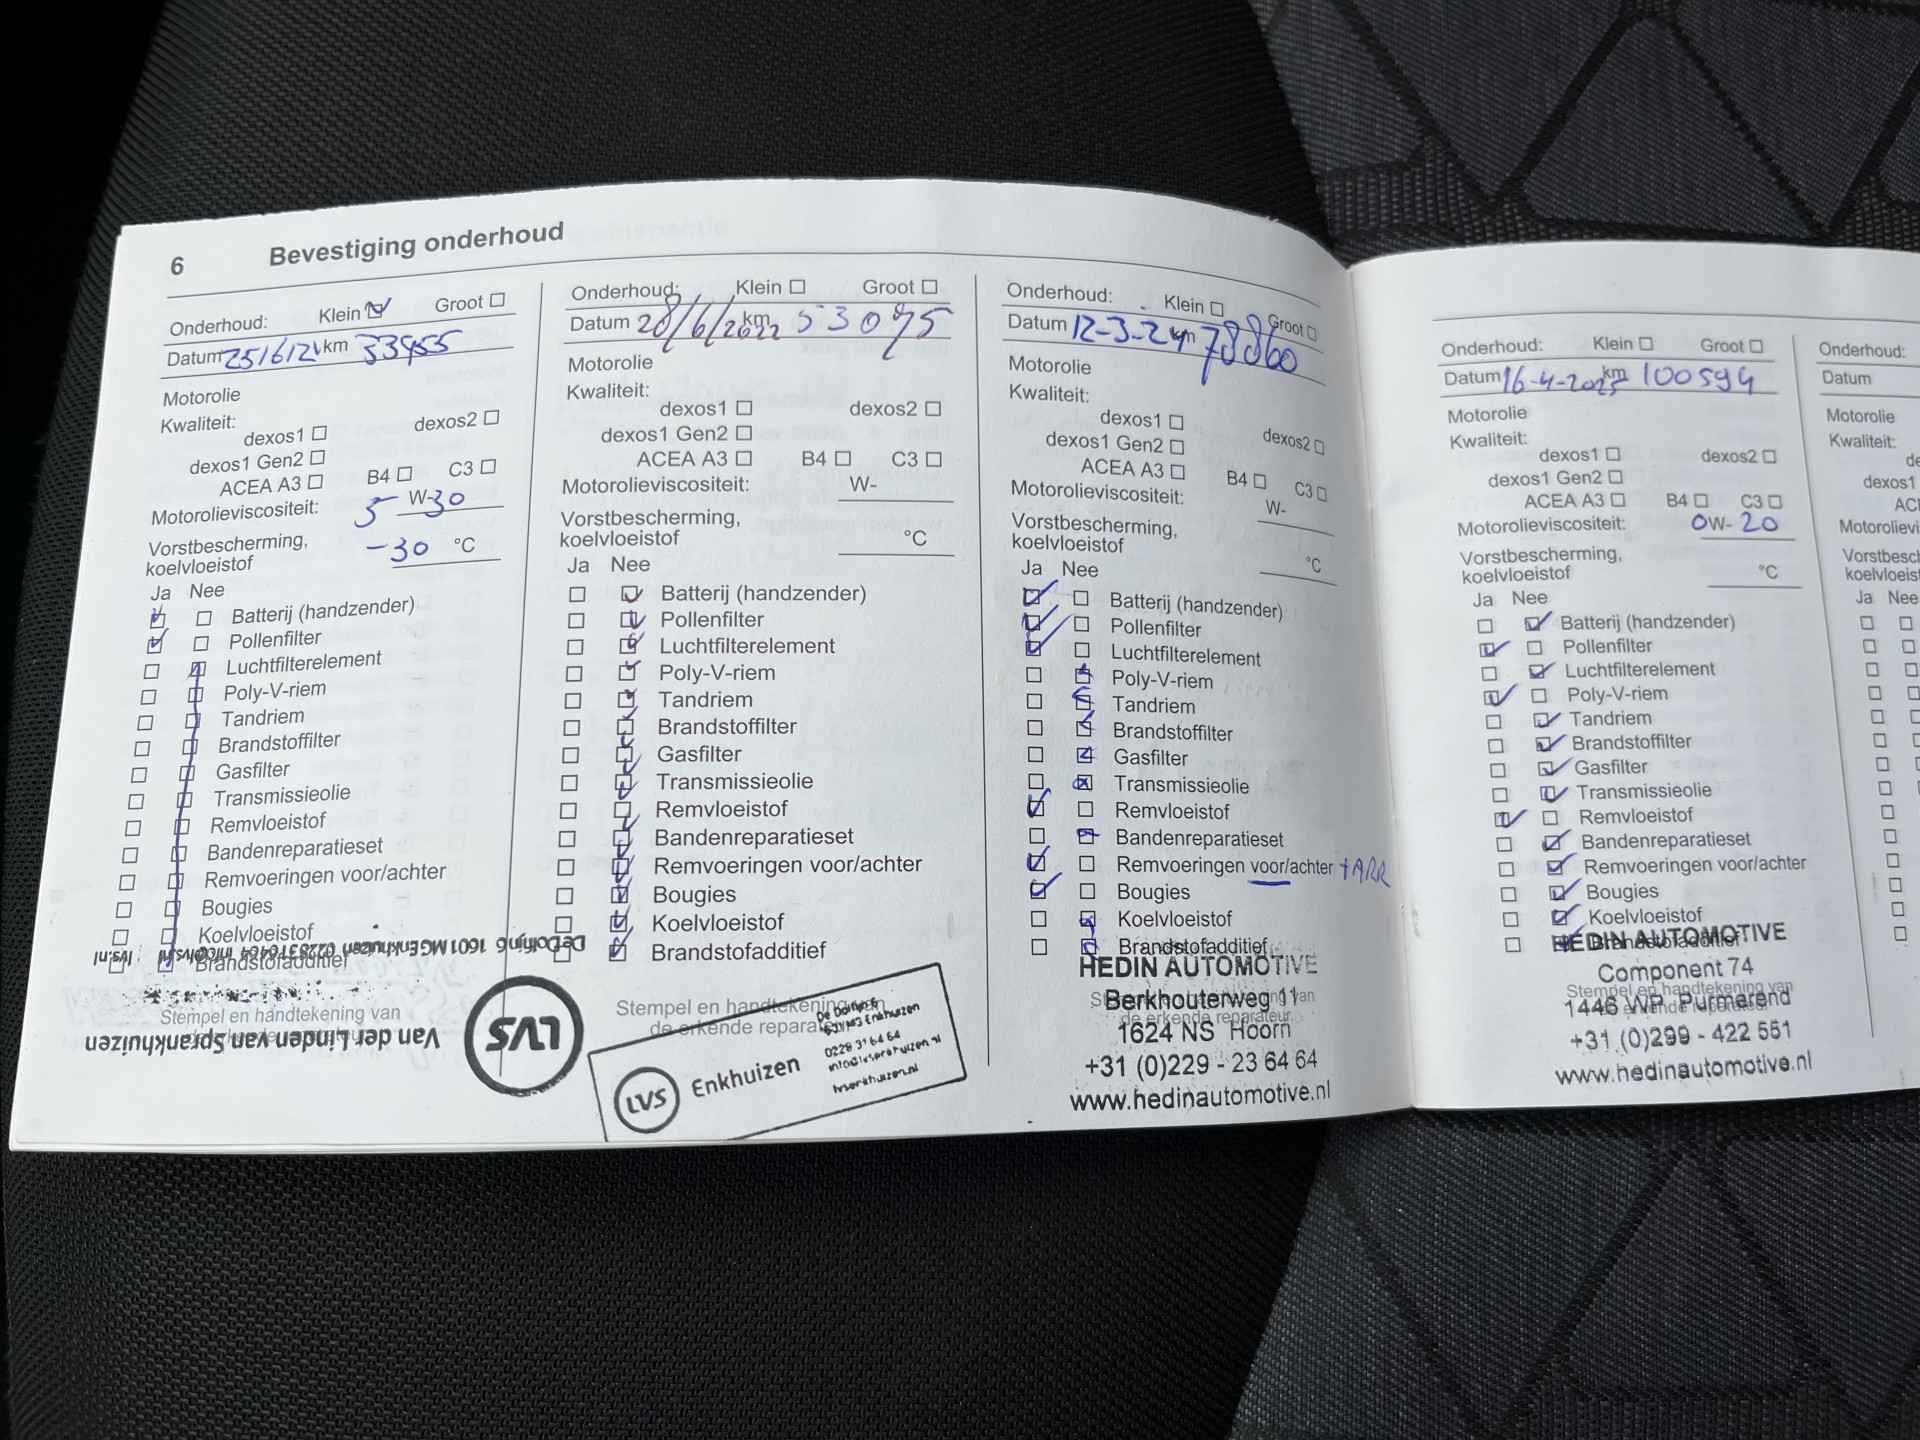 6 Bevestiging onderhoud
Onderhoud: Klein Groot
Datum 25/6/21 km 33955
Motorolie
Kwaliteit:
dexos1 dexos2
dexos1 Gen2
ACEA A3 B4 C3
Motorolieviscositeit: 5 W-30
Vorstbescherming,
koelvloeistof -30 °C
Ja Nee
Batterij (handzender)
Pollenfilter
Luchtfilterelement
Poly-V-riem
Tandriem
Brandstoffilter
Gasfilter
Transmissieolie
Remvloeistof
Bandenreparatieset
Remvoeringen voor/achter
Bougies
Koelvloeistof
Brandstofadditief
Stempel en handtekening van
de erkende reparateur
LVS
Van der Linden van Sprankhuizen
De Dolfijn 6 1601 MG Enkhuizen 0228 316464 info@lvs.nl lvs.nl
Onderhoud: Klein Groot
Datum 28/6/2022 km 53075
Motorolie
Kwaliteit:
dexos1 dexos2
dexos1 Gen2
ACEA A3 B4 C3
Motorolieviscositeit: W-
Vorstbescherming,
koelvloeistof °C
Ja Nee
Batterij (handzender)
Pollenfilter
Luchtfilterelement
Poly-V-riem
Tandriem
Brandstoffilter
Gasfilter
Transmissieolie
Remvloeistof
Bandenreparatieset
Remvoeringen voor/achter
Bougies
Koelvloeistof
Brandstofadditief
Stempel en handtekening van
de erkende reparateur
LVS Enkhuizen
Enkhuizen
0228 31 64 64
Onderhoud: Klein Groot
Datum 12-3-24 km 78860
Motorolie
Kwaliteit:
dexos1 dexos2
dexos1 Gen2
ACEA A3 B4 C3
Motorolieviscositeit: W-
Vorstbescherming,
koelvloeistof °C
Ja Nee
Batterij (handzender)
Pollenfilter
Luchtfilterelement
Poly-V-riem
Tandriem
Brandstoffilter
Gasfilter
Transmissieolie
Remvloeistof
Bandenreparatieset
Remvoeringen voor/achter
Bougies
Koelvloeistof
Brandstofadditief
Stempel en handtekening van
de erkende reparateur
HEDIN AUTOMOTIVE
Berkhouterweg 11
1624 NS Hoorn
+31 (0)229 - 23 64 64
www.hedinautomotive.nl
Onderhoud: Klein Groot
Datum 16-4-2025 km 100594
Motorolie
Kwaliteit:
dexos1 dexos2
dexos1 Gen2
ACEA A3 B4 C3
Motorolieviscositeit: 0W-20
Vorstbescherming,
koelvloeistof °C
Ja Nee
Batterij (handzender)
Pollenfilter
Luchtfilterelement
Poly-V-riem
Tandriem
Brandstoffilter
Gasfilter
Transmissieolie
Remvloeistof
Bandenreparatieset
Remvoeringen voor/achter
Bougies
Koelvloeistof
Brandstofadditief
Stempel en handtekening van
de erkende reparateur
HEDIN AUTOMOTIVE
Component 74
1446 WP Purmerend
+31 (0)299 - 422 551
www.hedinautomotive.nl
Onderhoud:
Datum
Motorolie
Kwaliteit:
dexos1
Ja Nee